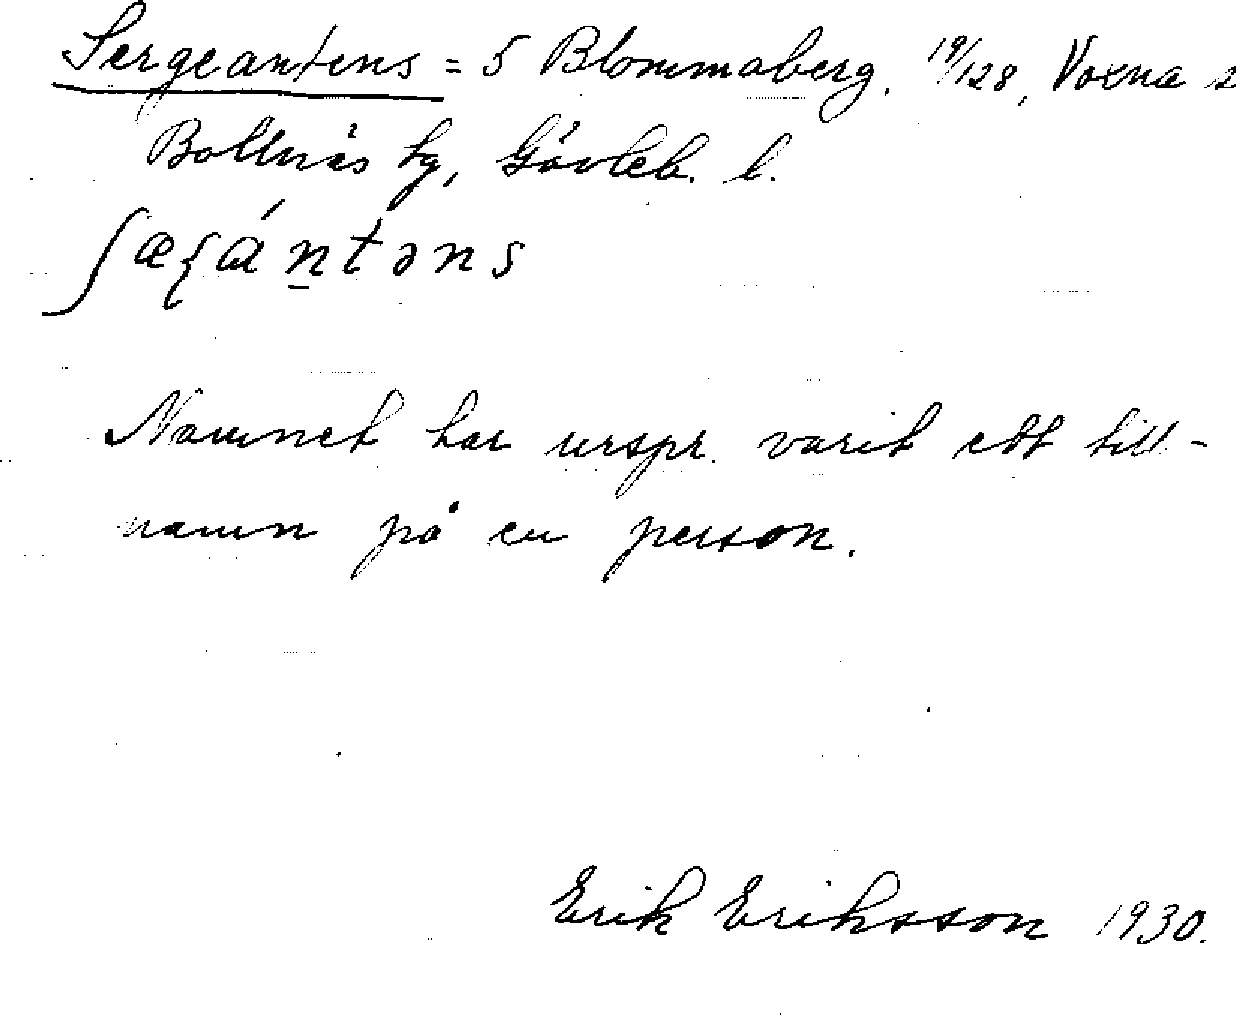 Sergeantens = 5 Blommaberg, 19/128, Voxna s
Bollnäs tg, Gävleb. l.
ʃæʃántəns
Namnet har urspr. varit ett till-
namn på en person.
Erik Eriksson 1930.